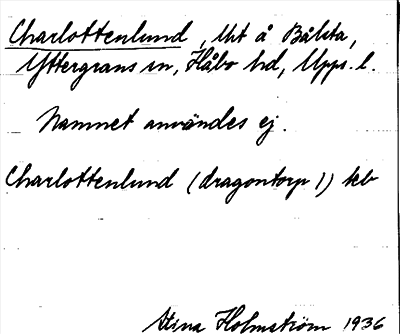 Charlottenlund, lht å Bålsta,
Yttergrans sn, Håbo hd, Upps. l.
Namnet användes ej.
Charlottenlund (dragontorp 1) kb
Stina Holmström 1936